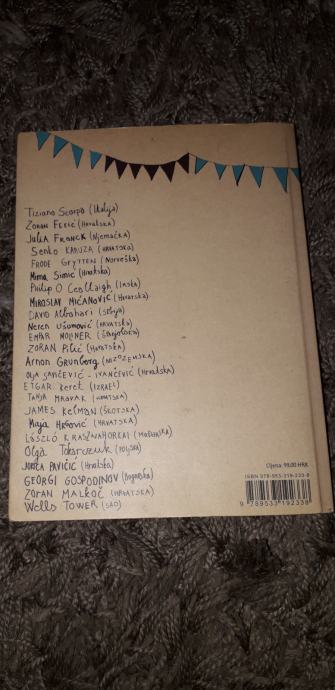 Tiziano Scarpa (Italija)
Zoran Ferić (Hrvatska)
Julia Franck (Njemačka)
Senko KARUZA (HRVATSKA)
FRODE GRYTTEN (Norveška)
Mima Simić (Hrvatska)
Philip Ó Ceallaigh (Irska)
MIROSLAV MIĆANOVIĆ (Hrvatska)
DAVID Albahari (Srbija)
Neven Ušumović (HRVATSKA)
ZORAN Pilić (HRVATSKA)
Arnon Grunberg (NIZOZEMSKA)
OLJA SAVIČEVIĆ - IVANČEVIĆ (Hrvatska)
ETGAR Keret (IZRAEL)
TANJA MRAVAK (HRVATSKA)
JAMES KELMAN (ŠKOTSKA)
Maja Hrgović (HRVATSKA)
LÁSZLÓ KRASZNAHORKAI (MAĐARSKA)
Olga Tokarczuk (POLJSKA)
JURICA PAVIČIĆ (Hrvatska)
GEORGI GOSPODINOV (Bugarska)
ZORAN MALKOČ (HRVATSKA)
Wells TOWER (SAD)
Cijena: 99,00 HRK
ISBN 978-953-319-233-8
9 789533 192338